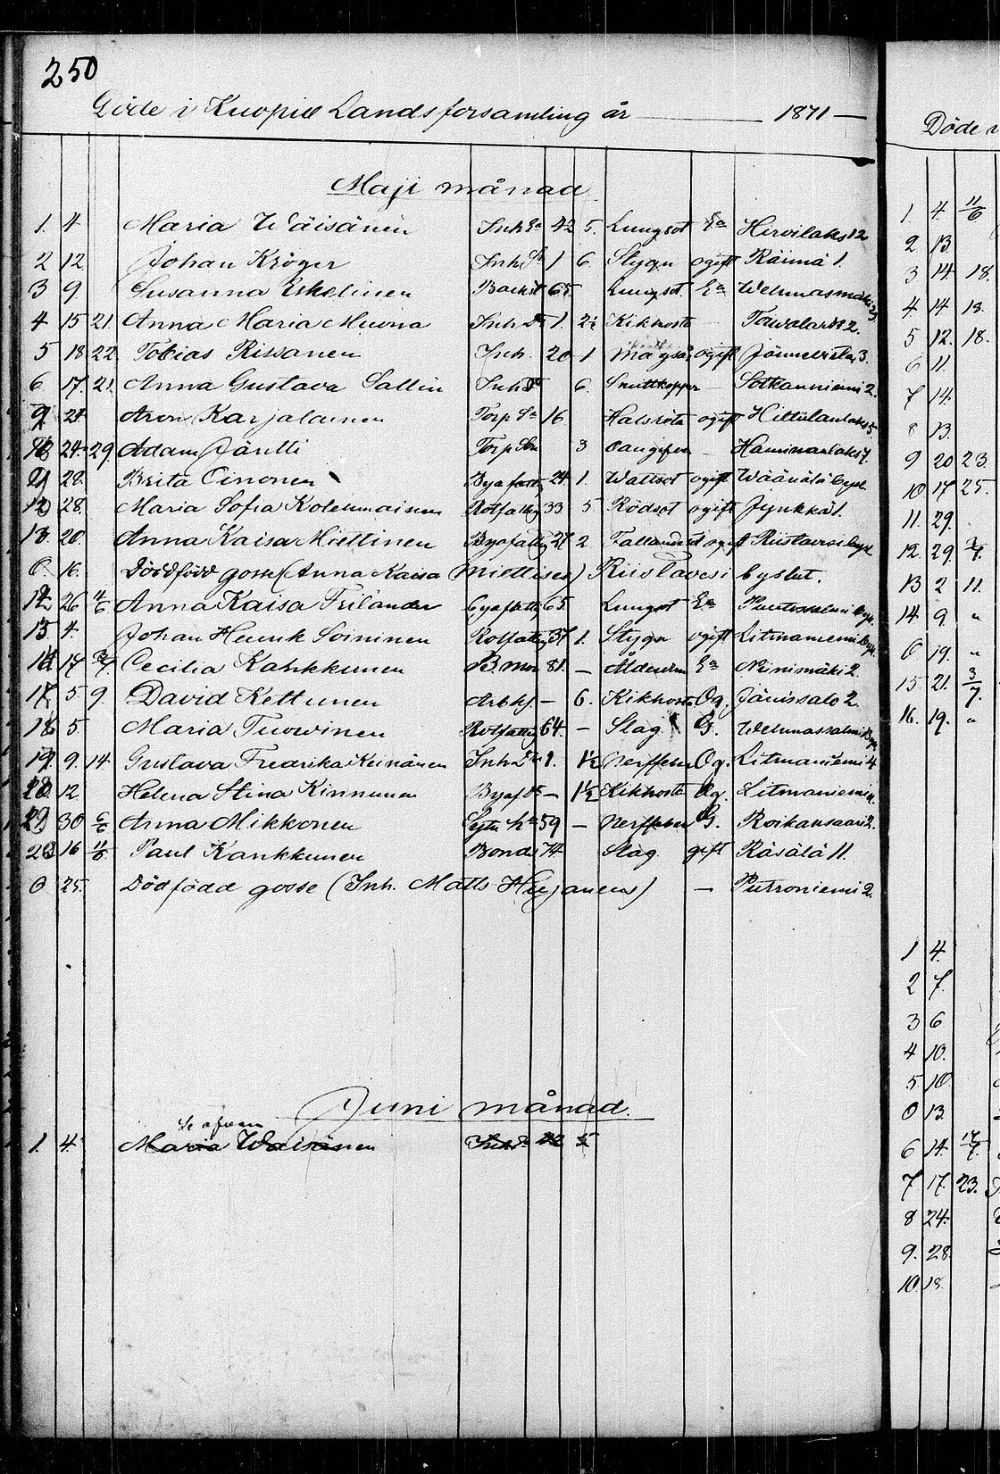 250
Döde i Kuopio Landsforsamling år 1871
Maji månad
1. 4 Maria Wäisänen Inh Ea 42 5. Lungsot Ea Hirvilaks 12
2 12 Johan Kröger Inh 1 6. Stygn ogift Räimä 1.
3 9 Susanna Eskelinen Backst 65 Lungsot. Ea Wehmasmäki
4 15 21. Anna Maria Muona Inh Dr 1. 2½ Kikhosta Taivalaris 2.
5 18 22. Tobias Rissanen Inh. 20 1 ogift Jännevirta 3.
6. 17. 21. Anna Gustava Sallin Inh Dr 6. Smittkoppor Sotkanniemi 2.
24 Aron Karjalainen Torp Sn 16 Halsröta ogift Hiltulanlaks 5
24 29 Adam Jäntti Torp Son 3 oangifven Haminanlaks 7.
28. Brita Cinonen Byafattig 24 1. Wattsot ogift Wäänälä byst
12 28. Maria Sofia Kolehmainen Rotfattig 33 5 Rödsot ogift Jynkkä 1.
13. 20. Anna Kaisa Miettinen Byafattig 27 2 Riistavesi byst
0. 16. Dödfödd gosse (Anna Kaisa Miettises) Riistavesi byslut.
14 26 4/6 Anna Kaisa Frilander byafattig 65. Lungsot Ea
15 4. Johan Henrik Soininen Rotfattig 37 1. Stygn ogift Litmaniemi
16 17 Cecilia Kahkkunen 81. – Ålderdom Ea Niinimäki 2.
17 5 9. David Kettunen – 6. Kikhosta Og. Jänissalo 2.
18 5. Maria Tuovinen Rotfattig 64. – Slag G. Wehmassalmi
19. 9. 14. Gustava Fredrika Keinänen Inh Dr 1. 1½ Nervfeber Og. Litmaniemi 4
20 12. Helena Stina Kinnunen Byaf Dr – 1½ Kikhosta Og. Litmaniemi
30 6/6 Anna Mikkonen 59 – Nervfeber G. Roikansaari 2.
16 11/6 Paul Kankkunen Bonde 74. Slag. gift Räsälä 11.
0 25. Dödfödd gosse (Inh. Matts Heyjanens) – Putroniemi 2.
Juni månad.
1. 4. Maria Waisänen
Döde
1. 4 11/6
2. 13.
3 14 18.
4 14 18.
5 12. 18.
6 11.
7 14.
8 13.
9 20 23.
10 17 25.
11. 29.
12. 29.
13 2 11.
14 9 "
0 19. "
15 21. 3/7.
16. 19. "
1 4.
2 7.
3 6
4 10.
5 10.
0 13.
6 14. 17/7.
7 17. 23.
8 24.
9. 28.
10. 18.